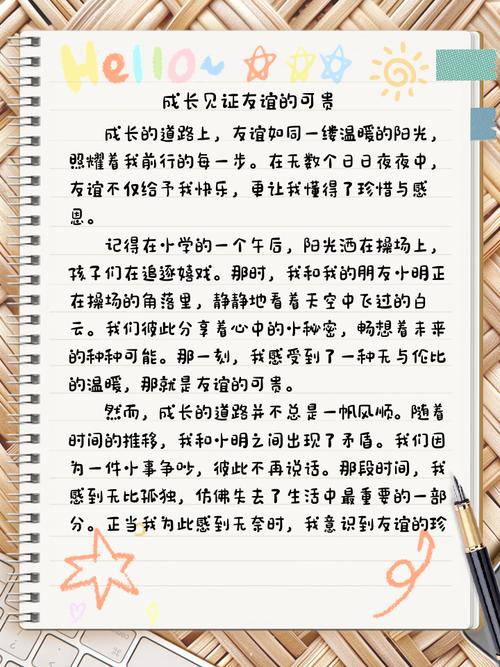 Hello~
成长见证友谊的可贵
成长的道路上，友谊如同一缕温暖的阳光，
照耀着我前行的每一步。在无数个日日夜夜中，
友谊不仅给予我快乐，更让我懂得了珍惜与感
恩。
记得在小学的一个午后，阳光洒在操场上，
孩子们在追逐嬉戏。那时，我和我的朋友小明正
在操场的角落里，静静地看着天空中飞过的白
云。我们彼此分享着心中的小秘密，畅想着未来
的种种可能。那一刻，我感受到了一种无与伦比
的温暖，那就是友谊的可贵。
然而，成长的道路并不总是一帆风顺。随着
时间的推移，我和小明之间出现了矛盾。我们因
为一件小事争吵，彼此不再说话。那段时间，我
感到无比孤独，仿佛失去了生活中最重要的一部
分。正当我为此感到无奈时，我意识到友谊的珍